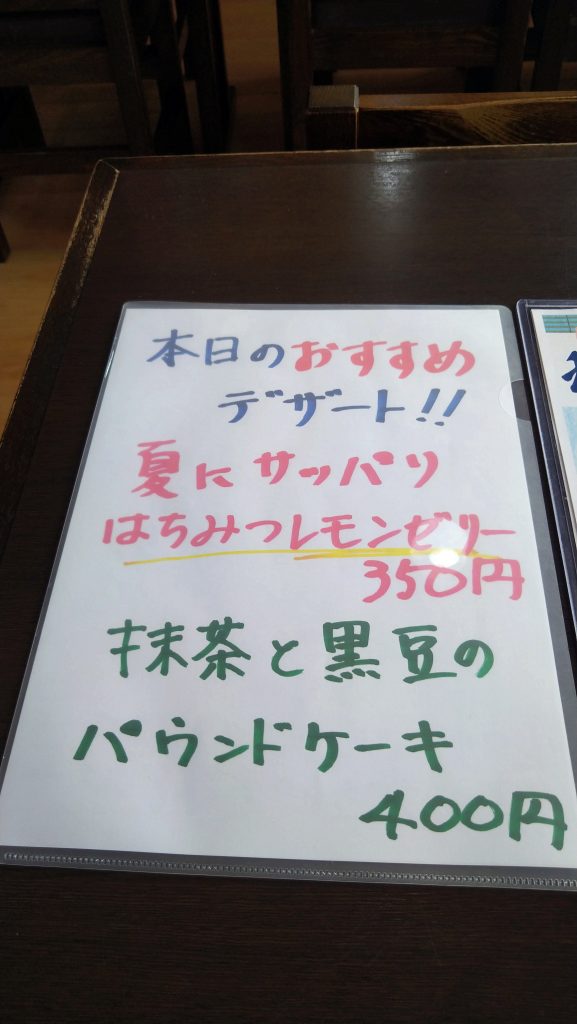 本日のおすすめ
デザート!!
夏にサッパリ
はちみつレモンゼリー
350円
抹茶と黒豆の
パウンドケーキ
400円